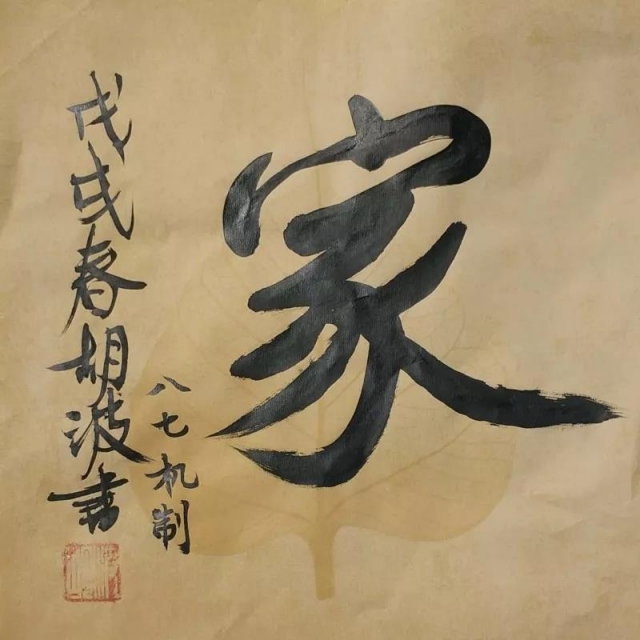 家
戊戌春胡波書
八七机制